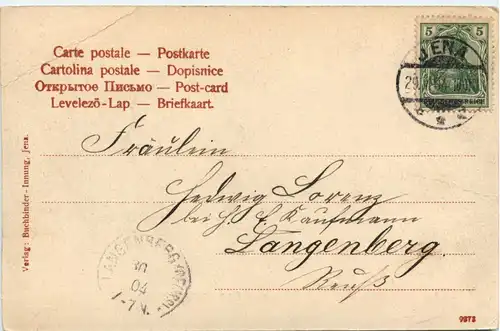 Carte postale — Postkarte
Cartolina postale — Dopisnice
Открытое Письмо — Post-card
Levelező-Lap — Briefkaart.
5 5
JENA
Fräulein
Hedwig Lorenz
bei H. E. Kaufmann
Langenberg.
Reuß
LANGENBERG
30
04
Verlag: Buchbinder-Innung, Jena.